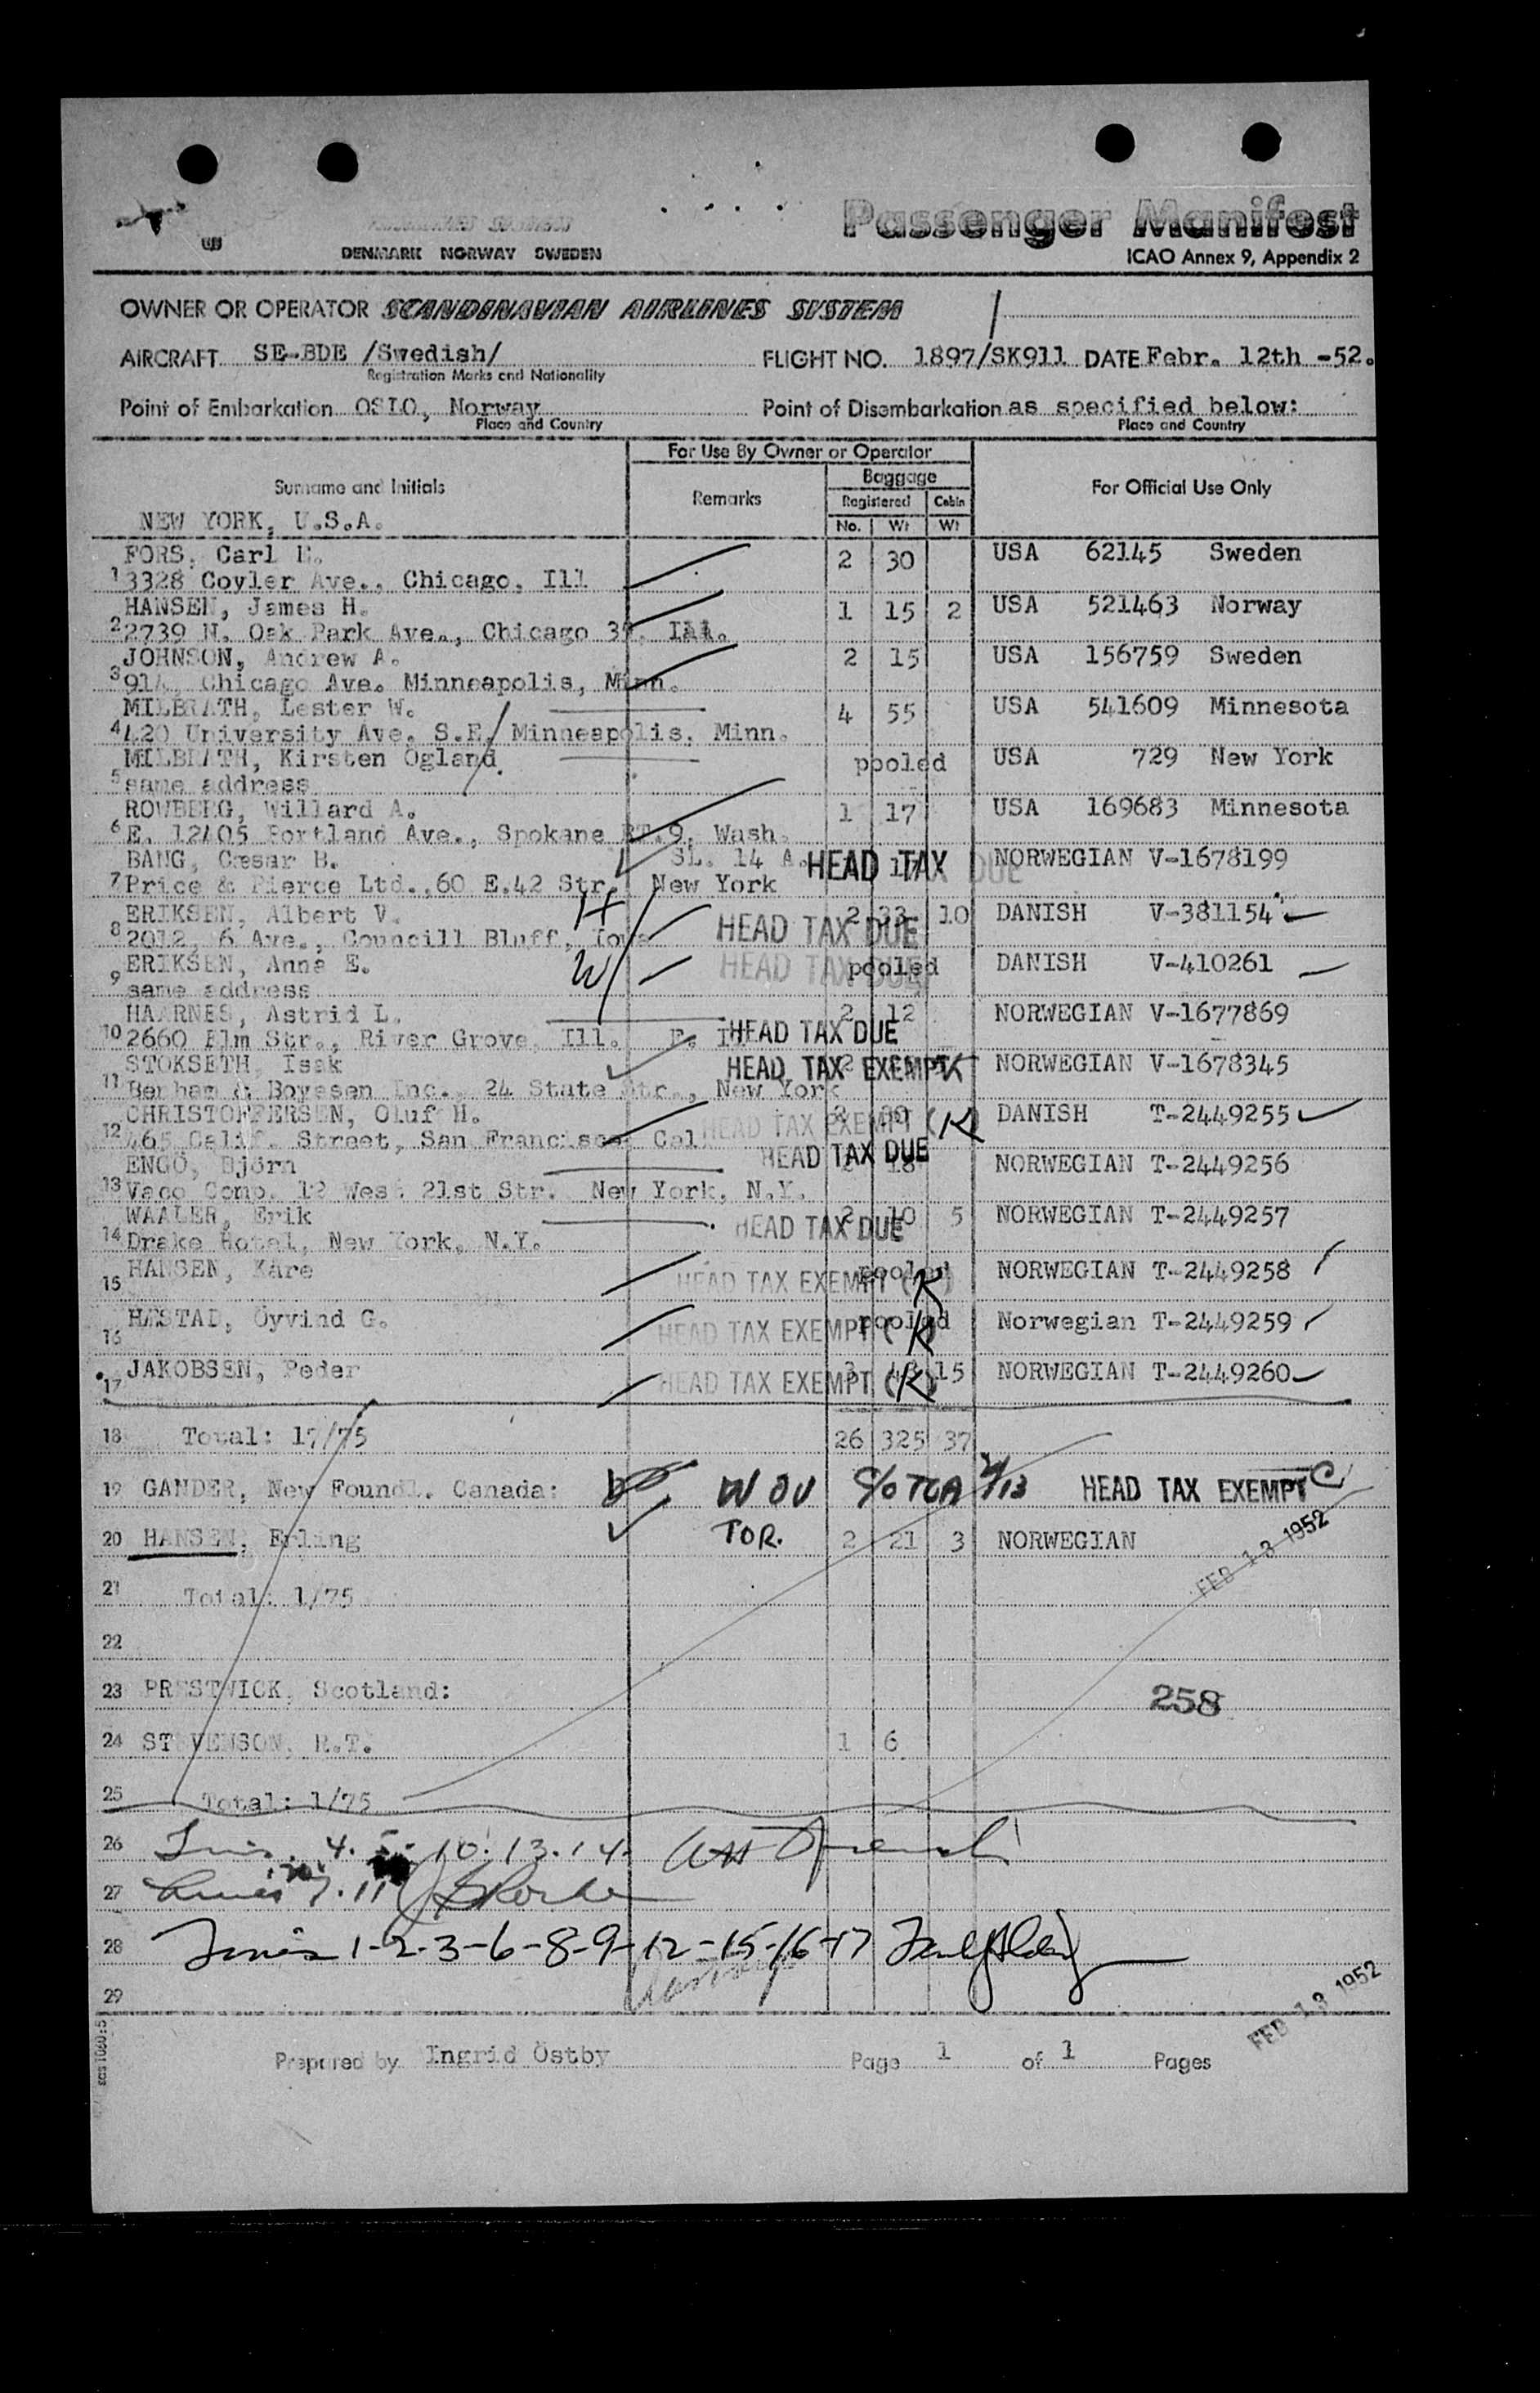 DENMARK NORWAY SWEDEN
Passenger Manifest
ICAO Annex 9, Appendix 2
OWNER OR OPERATOR SCANDINAVIAN AIRLINES SYSTEM
AIRCRAFT SE-BDE /Swedish/ FLIGHT NO. 1897/SK911 DATE Febr. 12th -52.
Registration Marks and Nationality
Point of Embarkation OSLO, Norway Point of Disembarkation as specified below:
Place and Country Place and Country
For Use By Owner or Operator
Surname and Initials Remarks Baggage For Official Use Only
Registered Cabin
NEW YORK, U.S.A. No. Wt Wt
FORS, Carl E. 2 30 USA 62145 Sweden
1 3328 Coyler Ave., Chicago, Ill
HANSEN, James H. 1 15 2 USA 521463 Norway
2 2739 N. Oak Park Ave., Chicago Ill.
JOHNSON, Andrew A. 2 15 USA 156759 Sweden
3 914, Chicago Ave. Minneapolis, Minn.
MILBRATH, Lester W. 4 55 USA 541609 Minnesota
4 420 University Ave. S.E. Minneapolis, Minn.
MILBRATH, Kirsten Ogland pooled USA 729 New York
5 same address
ROWBERG, Willard A. 1 17 USA 169683 Minnesota
6 E. 12405 Portland Ave., Spokane RT.9, Wash.
BANG, Cæsar B. SL. 14 A. HEAD TAX DUE NORWEGIAN V-1678199
7 Price & Pierce Ltd., 60 E.42 Str. New York
ERIKSEN, Albert V. H 2 33 10 DANISH V-381154
8 2012, 6 Ave., Councill Bluff, Iowa HEAD TAX DUE
ERIKSEN, Anna E. W HEAD TAX DUE pooled DANISH V-410261
9 same address
HAARNES, Astrid L. 2 12 NORWEGIAN V-1677869
10 2660 Elm Str., River Grove, Ill. HEAD TAX DUE
STOKSETH, Isak HEAD TAX EXEMPT K 2 NORWEGIAN V-1678345
11 Benham & Boyesen Inc., 24 State Str., New York
CHRISTOFFERSEN, Oluf H. HEAD TAX EXEMPT (K) DANISH T-2449255
12 465 Calif. Street, San Francisco, Cal
ENGÖ, Björn HEAD TAX DUE 18 NORWEGIAN T-2449256
13 Vaco Comp. 12 West 21st Str. New York, N.Y.
WAALER, Erik HEAD TAX DUE 2 10 5 NORWEGIAN T-2449257
14 Drake Hotel, New York, N.Y.
15 HANSEN, Kåre HEAD TAX EXEMPT (K) pooled NORWEGIAN T-2449258
16 HÆSTAD, Öyvind G. HEAD TAX EXEMPT (K) pooled Norwegian T-2449259
17 JAKOBSEN, Peder HEAD TAX EXEMPT (K) 3 15 NORWEGIAN T-2449260
18 Total: 17/75 26 325 37
19 GANDER, New Foundl. Canada: WOU C/O TCA 2/13 HEAD TAX EXEMPT C
20 HANSEN, Erling TOR. 2 21 3 NORWEGIAN
FEB 13 1952
21 Total: 1/75
22
23 PRESTWICK, Scotland: 258
24 STEVENSON, R.T. 1 6
25 Total: 1/75
26 4. 5. 10. 13. 14.
27 Lines 7. 11
28 Lines 1-2-3-6-8-9-12-15-16-17
29
FEB 13 1952
Prepared by Ingrid Östby Page 1 of 1 Pages